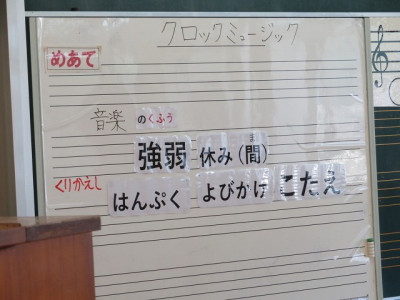 クロックミュージック
めあて
音楽 のくふう
強弱 休み(間)
ま
くりかえし
はんぷく よびかけ こたえ